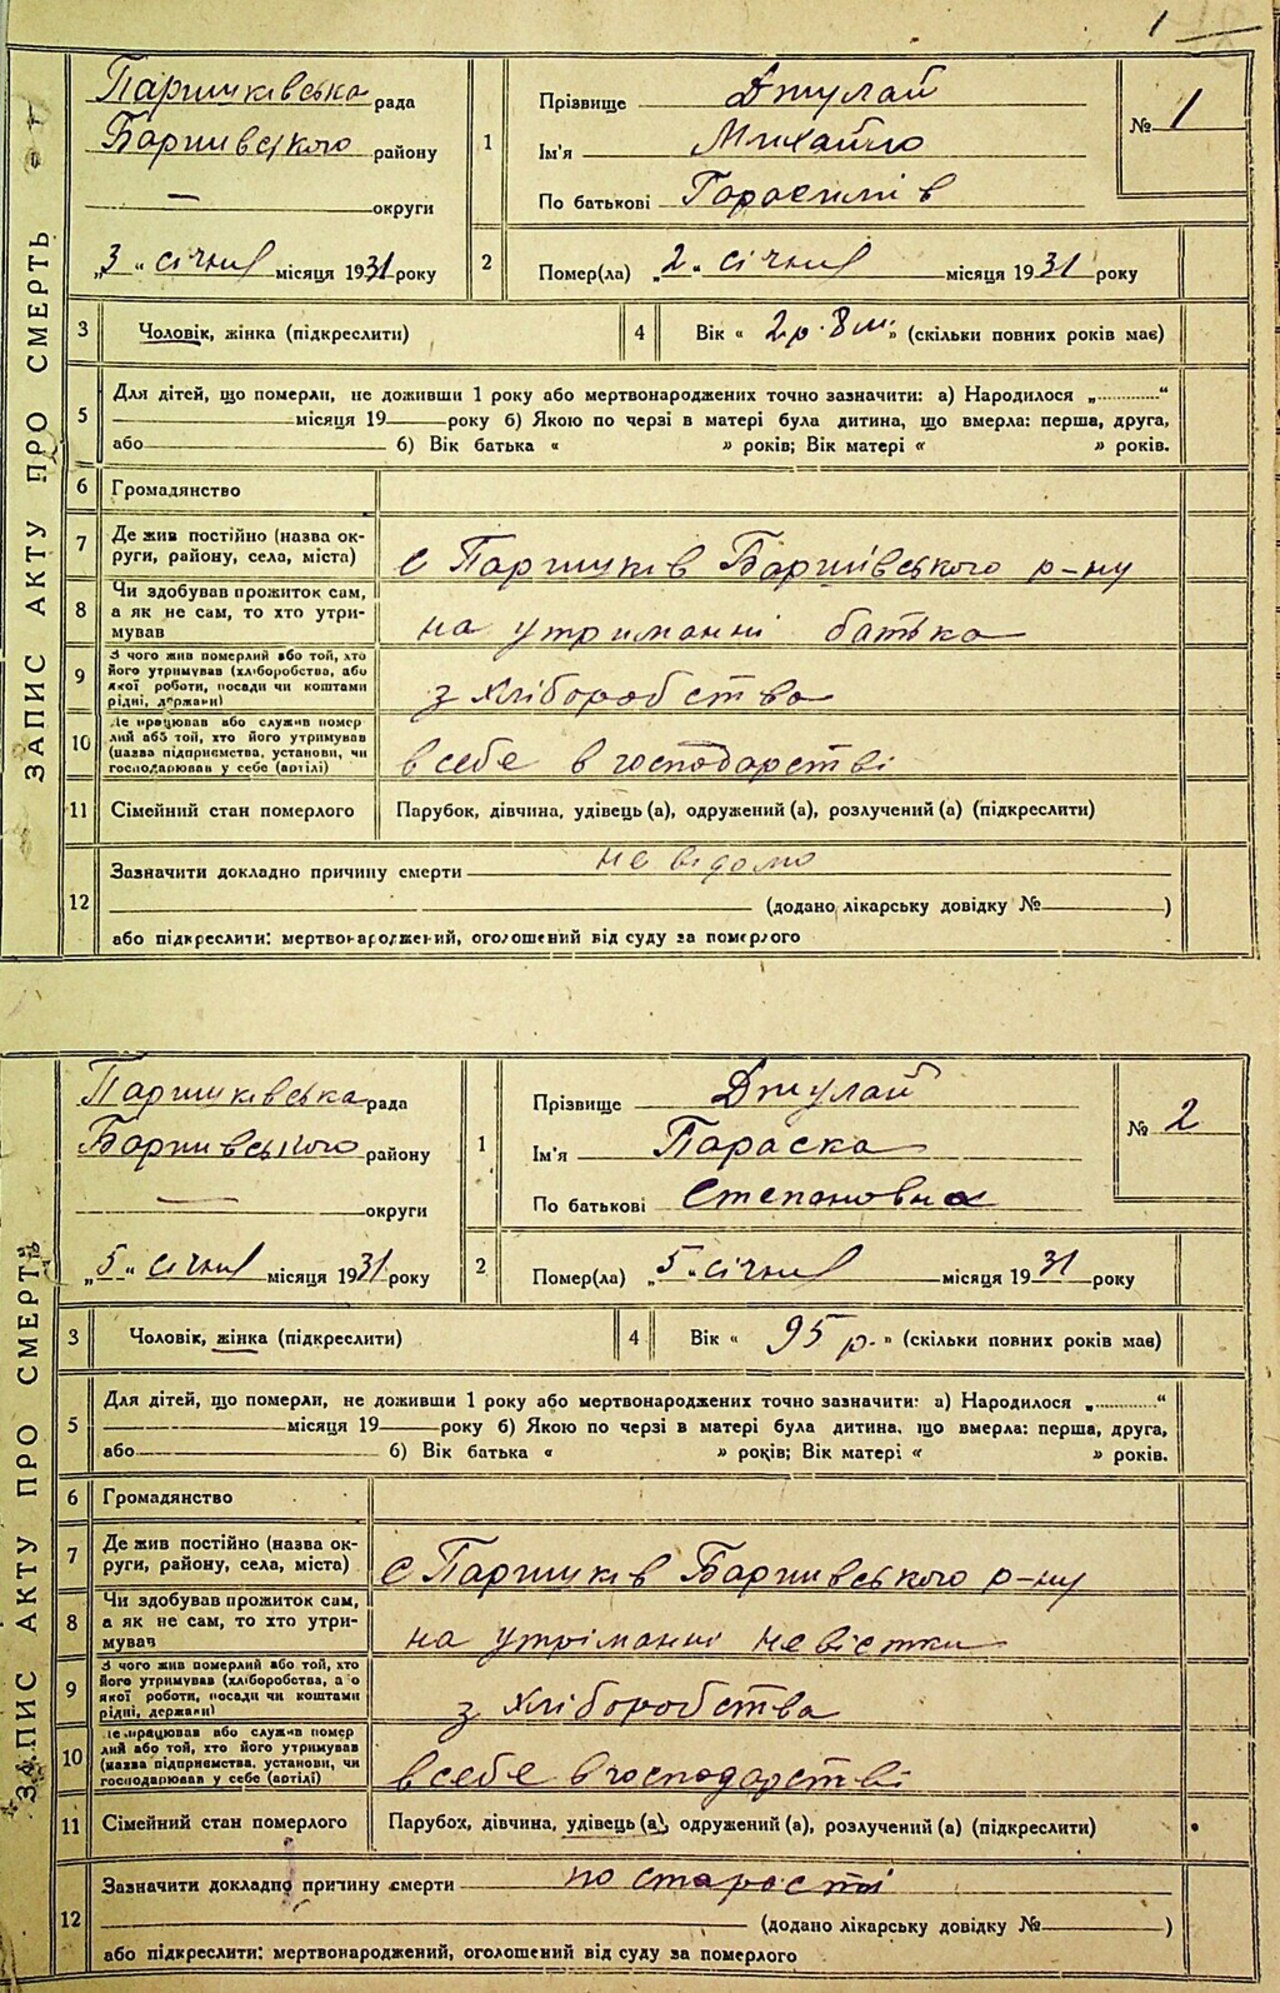 1
ЗАПИС АКТУ ПРО СМЕРТЬ
Паришківська рада
Баришівського району
— округи
„3“ січня місяця 1931 року
1
Прізвище Джулай
Ім'я Михайло
По батькові Гарасимів
№ 1
2
Помер(ла) „2“ січня місяця 1931 року
3 Чоловік, жінка (підкреслити)
4 Вік « 2 р. 8 м. » (скільки повних років має)
5 Для дітей, що померли, не доживши 1 року або мертвонароджених точно зазначити: а) Народилося „............“
місяця 19 року б) Якою по черзі в матері була дитина, що вмерла: перша, друга,
або б) Вік батька « » років; Вік матері « » років.
6 Громадянство
7 Де жив постійно (назва ок-
руги, району, села, міста)
с Паришків Баришівського р-ну
8 Чи здобував прожиток сам,
а як не сам, то хто утри-
мував
на утриманні батька
9 З чого жив померлий або той, хто
його утримував (хліборобства, або
якої роботи, посади чи коштами
рідні, держави)
з хліборобства
10 Де працював або служив помер
лий або той, хто його утримував
(назва підприємства, установи, чи
господарював у себе (артілі)
в себе в господарстві
11 Сімейний стан померлого Парубок, дівчина, удівець (а), одружений (а), розлучений (а) (підкреслити)
12 Зазначити докладно причину смерти не відомо
(додано лікарську довідку № )
або підкреслити: мертвонароджений, оголошений від суду за померлого
ЗАПИС АКТУ ПРО СМЕРТЬ
Паришківська рада
Баришівського району
— округи
„5“ січня місяця 1931 року
1
Прізвище Джулай
Ім'я Параска
По батькові Степановна
№ 2
2
Помер(ла) „5“ січня місяця 1931 року
3 Чоловік, жінка (підкреслити)
4 Вік « 95 р. » (скільки повних років має)
5 Для дітей, що померли, не доживши 1 року або мертвонароджених точно зазначити: а) Народилося „............“
місяця 19 року б) Якою по черзі в матері була дитина, що вмерла: перша, друга,
або б) Вік батька « » років; Вік матері « » років.
6 Громадянство
7 Де жив постійно (назва ок-
руги, району, села, міста)
с Паришків Баришівського р-ну
8 Чи здобував прожиток сам,
а як не сам, то хто утри-
мував
на утріманні невістки
9 З чого жив померлий або той, хто
його утримував (хліборобства, або
якої роботи, посади чи коштами
рідні, держави)
з хліборобства
10 Де працював або служив помер
лий або той, хто його утримував
(назва підприємства, установи, чи
господарював у себе (артілі)
в себе в господарстві
11 Сімейний стан померлого Парубок, дівчина, удівець (а), одружений (а), розлучений (а) (підкреслити)
12 Зазначити докладно причину смерти по старості
(додано лікарську довідку № )
або підкреслити: мертвонароджений, оголошений від суду за померлого